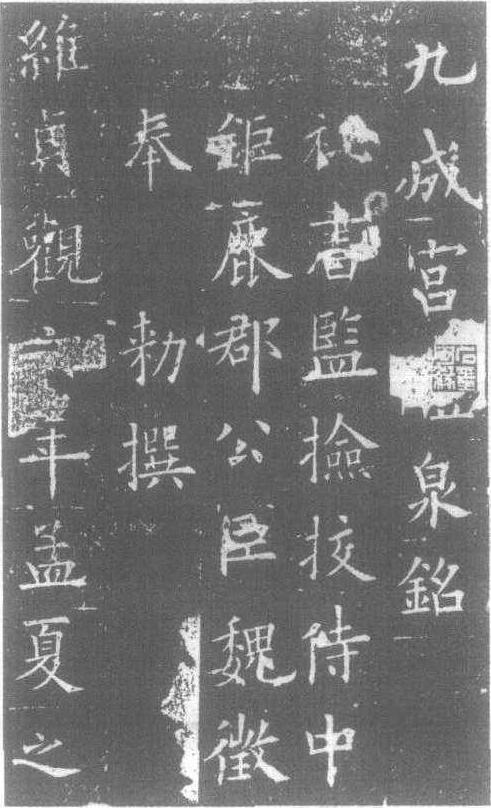 九成宮泉銘
祕書監撿挍侍中
鉅鹿郡公臣魏徵
奉 勅撰
維貞觀六年孟夏之